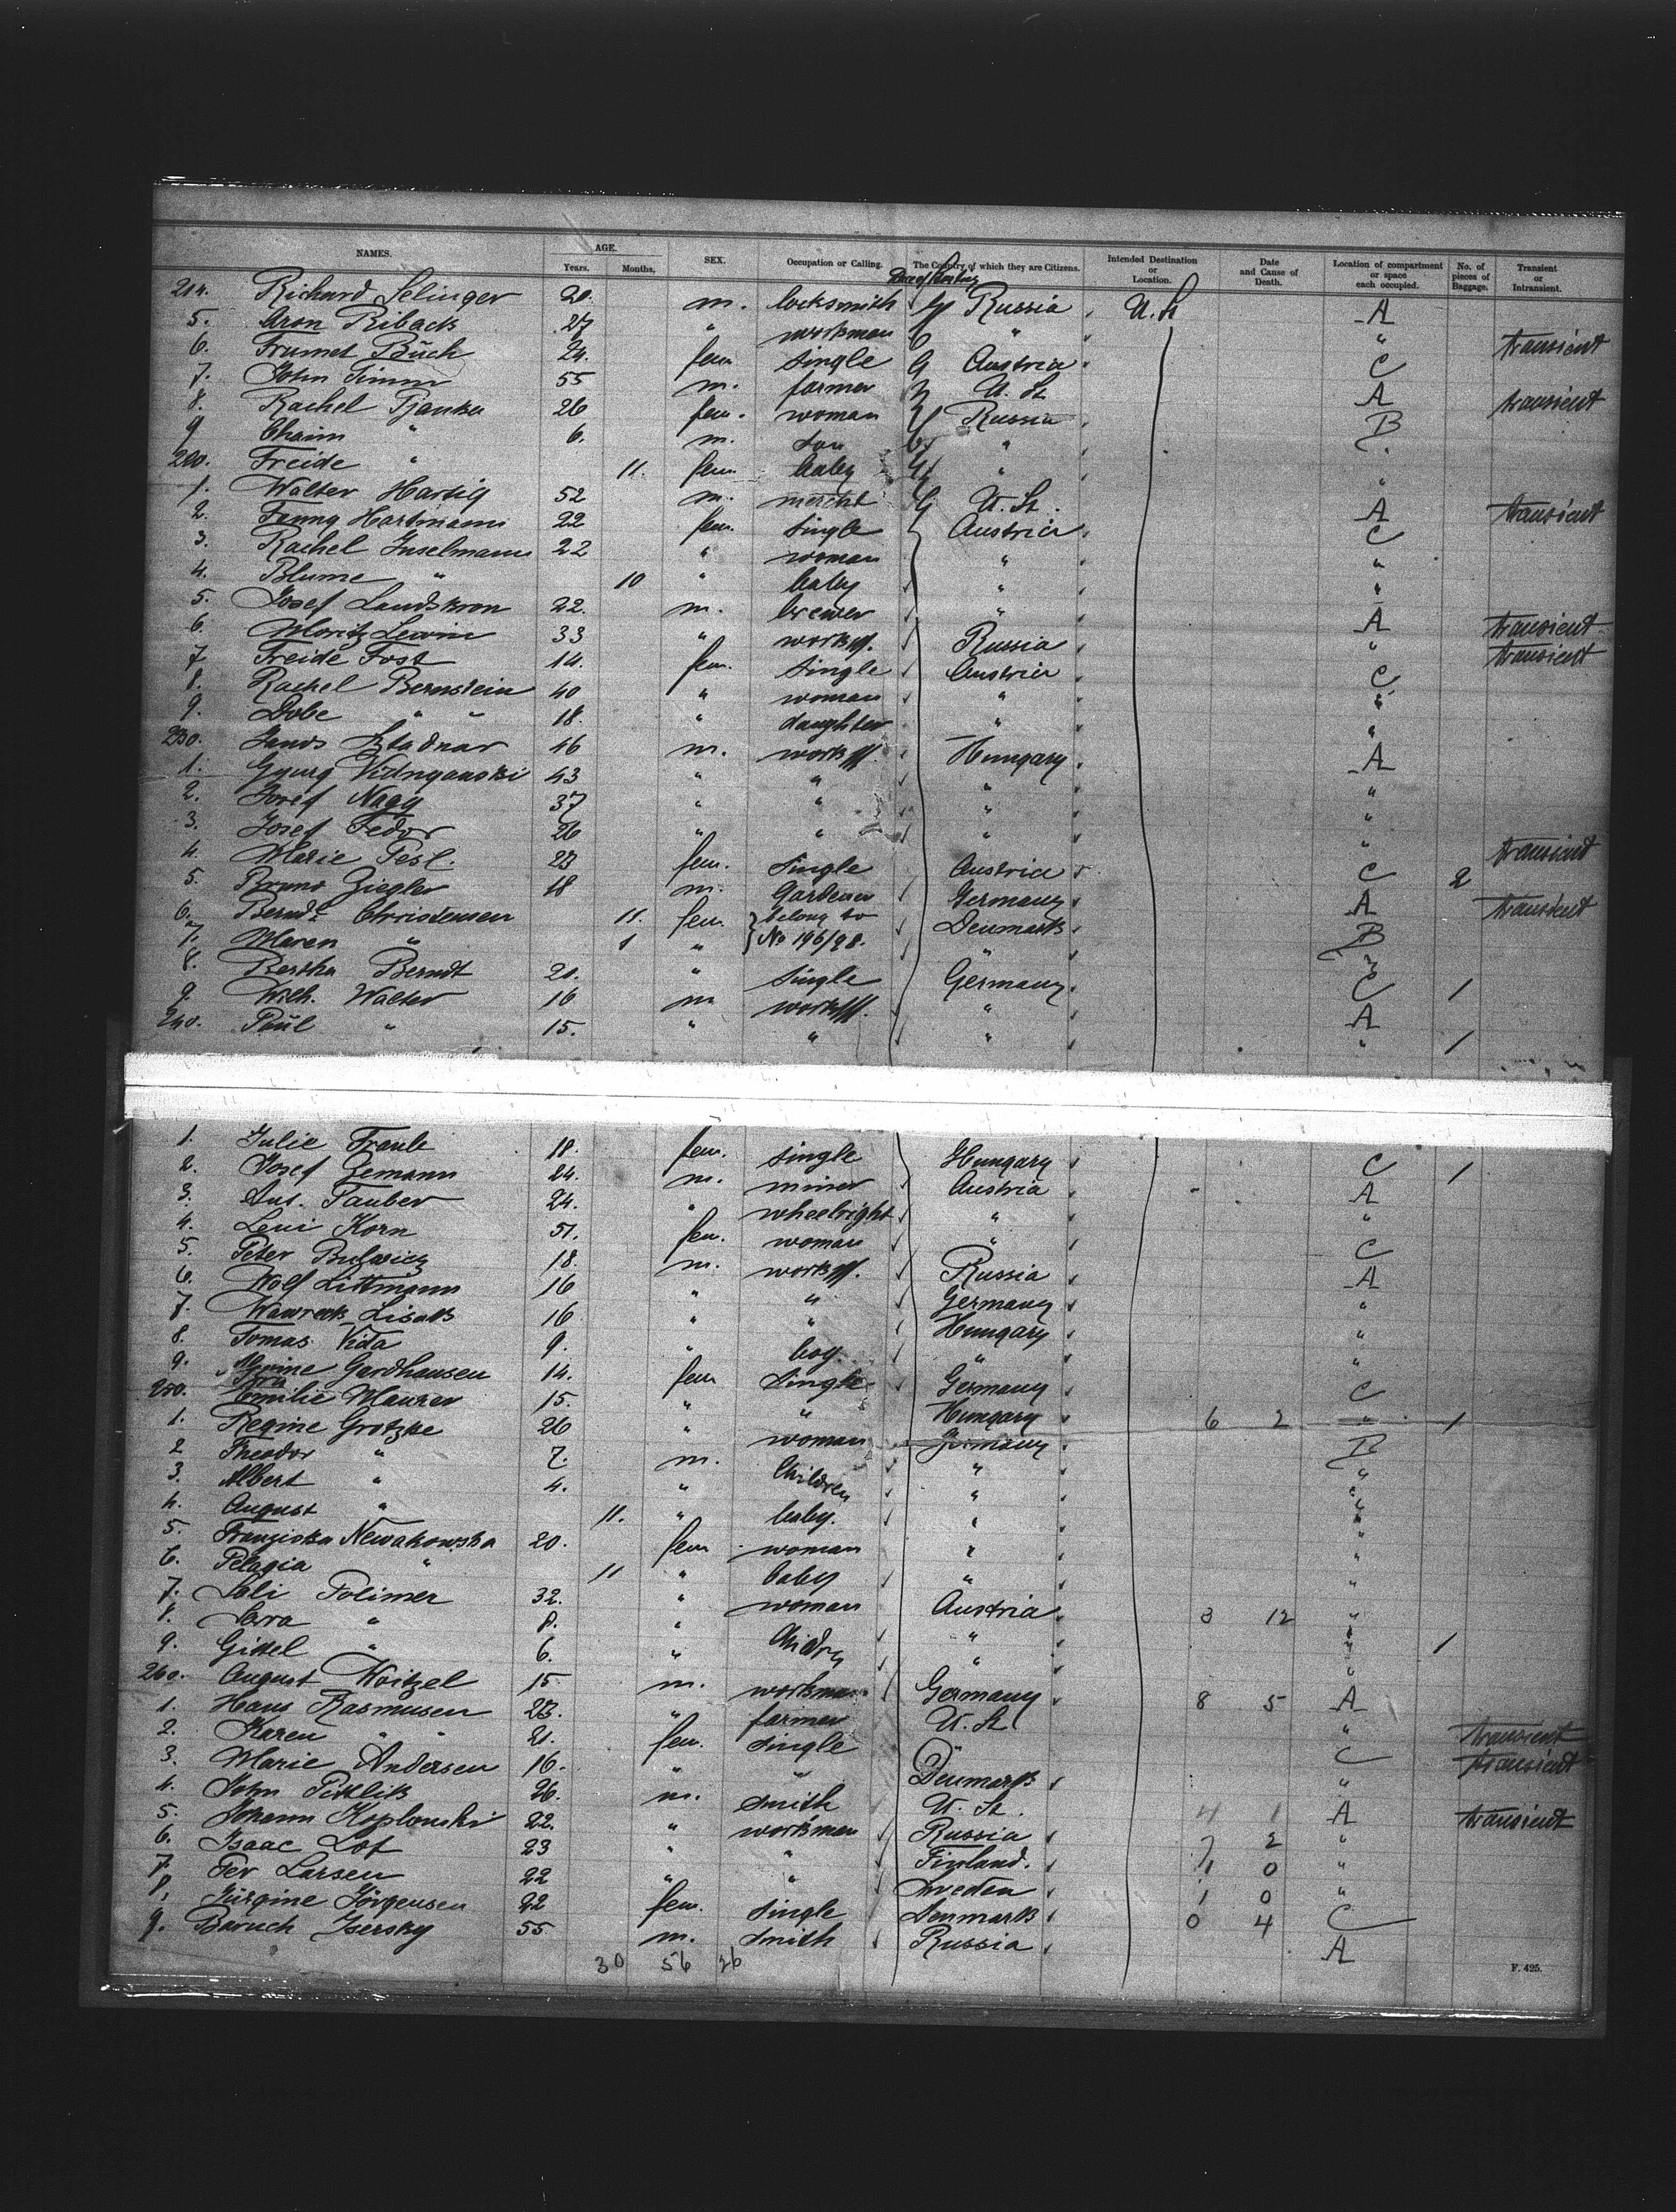 NAMES. AGE. Years. Months. SEX. Occupation or Calling. The Country of which they are Citizens. Intended Destination or Location. Date and Cause of Death. Location of compartment or space each occupied. No. of pieces of Baggage. Transient or Intransient.
214. Richard Selinger 20. m. locksmith Russia U. St A
5. Aron Riback 27 " workman " " transient
6. Frumet Buch 24. fem single Austria C
7. John Timm 55 m. farmer U. St A transient
8. Rachel Pjanka 26 fem. woman Russia B
9 Chaim " 6. m. son " "
220. Freide " 11. fem. baby " "
1. Walter Hartig 52 m. mercht U. St. A transient
2. Fanny Hartmann 22 fem. single Austria C
3. Rachel Inselmann 22 " woman " "
4. Blume " 10 " baby " "
5. Josef Landskron 22. m. brewer " A transient
6. Moritz Lewin 33 " workm. Russia " transient
7 Freide Fost 14. fem. single Austria C
8. Rachel Bernstein 40 " woman " "
9. Dobe " 18. " daughter " "
230. Janos 46 m. workm. Hungary A
1. 43 " " " "
2. Josef Nagy 37 " " " "
3. Josef Fedor 26 " " " " transient
4. Marie Pesl. 23 fem. single Austria C 2
5. Bruno Ziegler 18 m. Gardener Germany A transient
6. Christensen 11. fem. belong to Denmark B
7. Maren " 1 " No 196/98. "
8. Bertha Berndt 20. " single Germany C 1
9. Wilh. Walter 16 m workm. " A
240. Paul " 15. " " " " 1
1. Julie Fraule 18. fem. single Hungary C 1
2. Josef Zemann 24. m. miner Austria A
3. Ant. Tauber 24. " wheelright " "
4. Leui Korn 51. fem. woman " C
5. Peter 18. m. workm. Russia A
6. Wolf Littmann 16 " " Germany "
7. Lisak 16 " " Hungary "
8. Tomas Vida 9. " boy. " "
9. Gardhausen 14. fem single Germany C
250. Emilie Maurer 15. " " Hungary 6 2 " 1
1. Regine Grotzke 26 " woman Germany B
2 Theodor " 7. m. Children " "
3. Albert " 4. " " "
4. August " 11. " baby. " "
5. Franziska Newakowska 20. fem woman " "
6. Pelagia " 11 " baby " "
7. Sali Polimer 32. " woman Austria 3 12 "
8. Sara " 8. " Children " "
9. Gittel " 6. " " " 1
260. August Woitzel 15 m. workman Germany 8 5 A
1. Hans Rasmusen 23. " farmer U. St. " transient
2. Karen " 21. fem. single " C transient
3. Marie Andersen 16. " " Denmark "
4. John Pitllik 26. m. smith U. St. 4 1 A transient
5. Johann Koplonski 22. " workman Russia 7 2 "
6. Isaac Lof 23 " " Finland. 1 0 "
7. Per Larsen 22 " " Sweden 1 0 "
8. Jürgine Jörgensen 22 fem. single Denmark 0 4 C
9. Baruch Isersky 55 m. smith Russia A
30 56 26
F. 425.